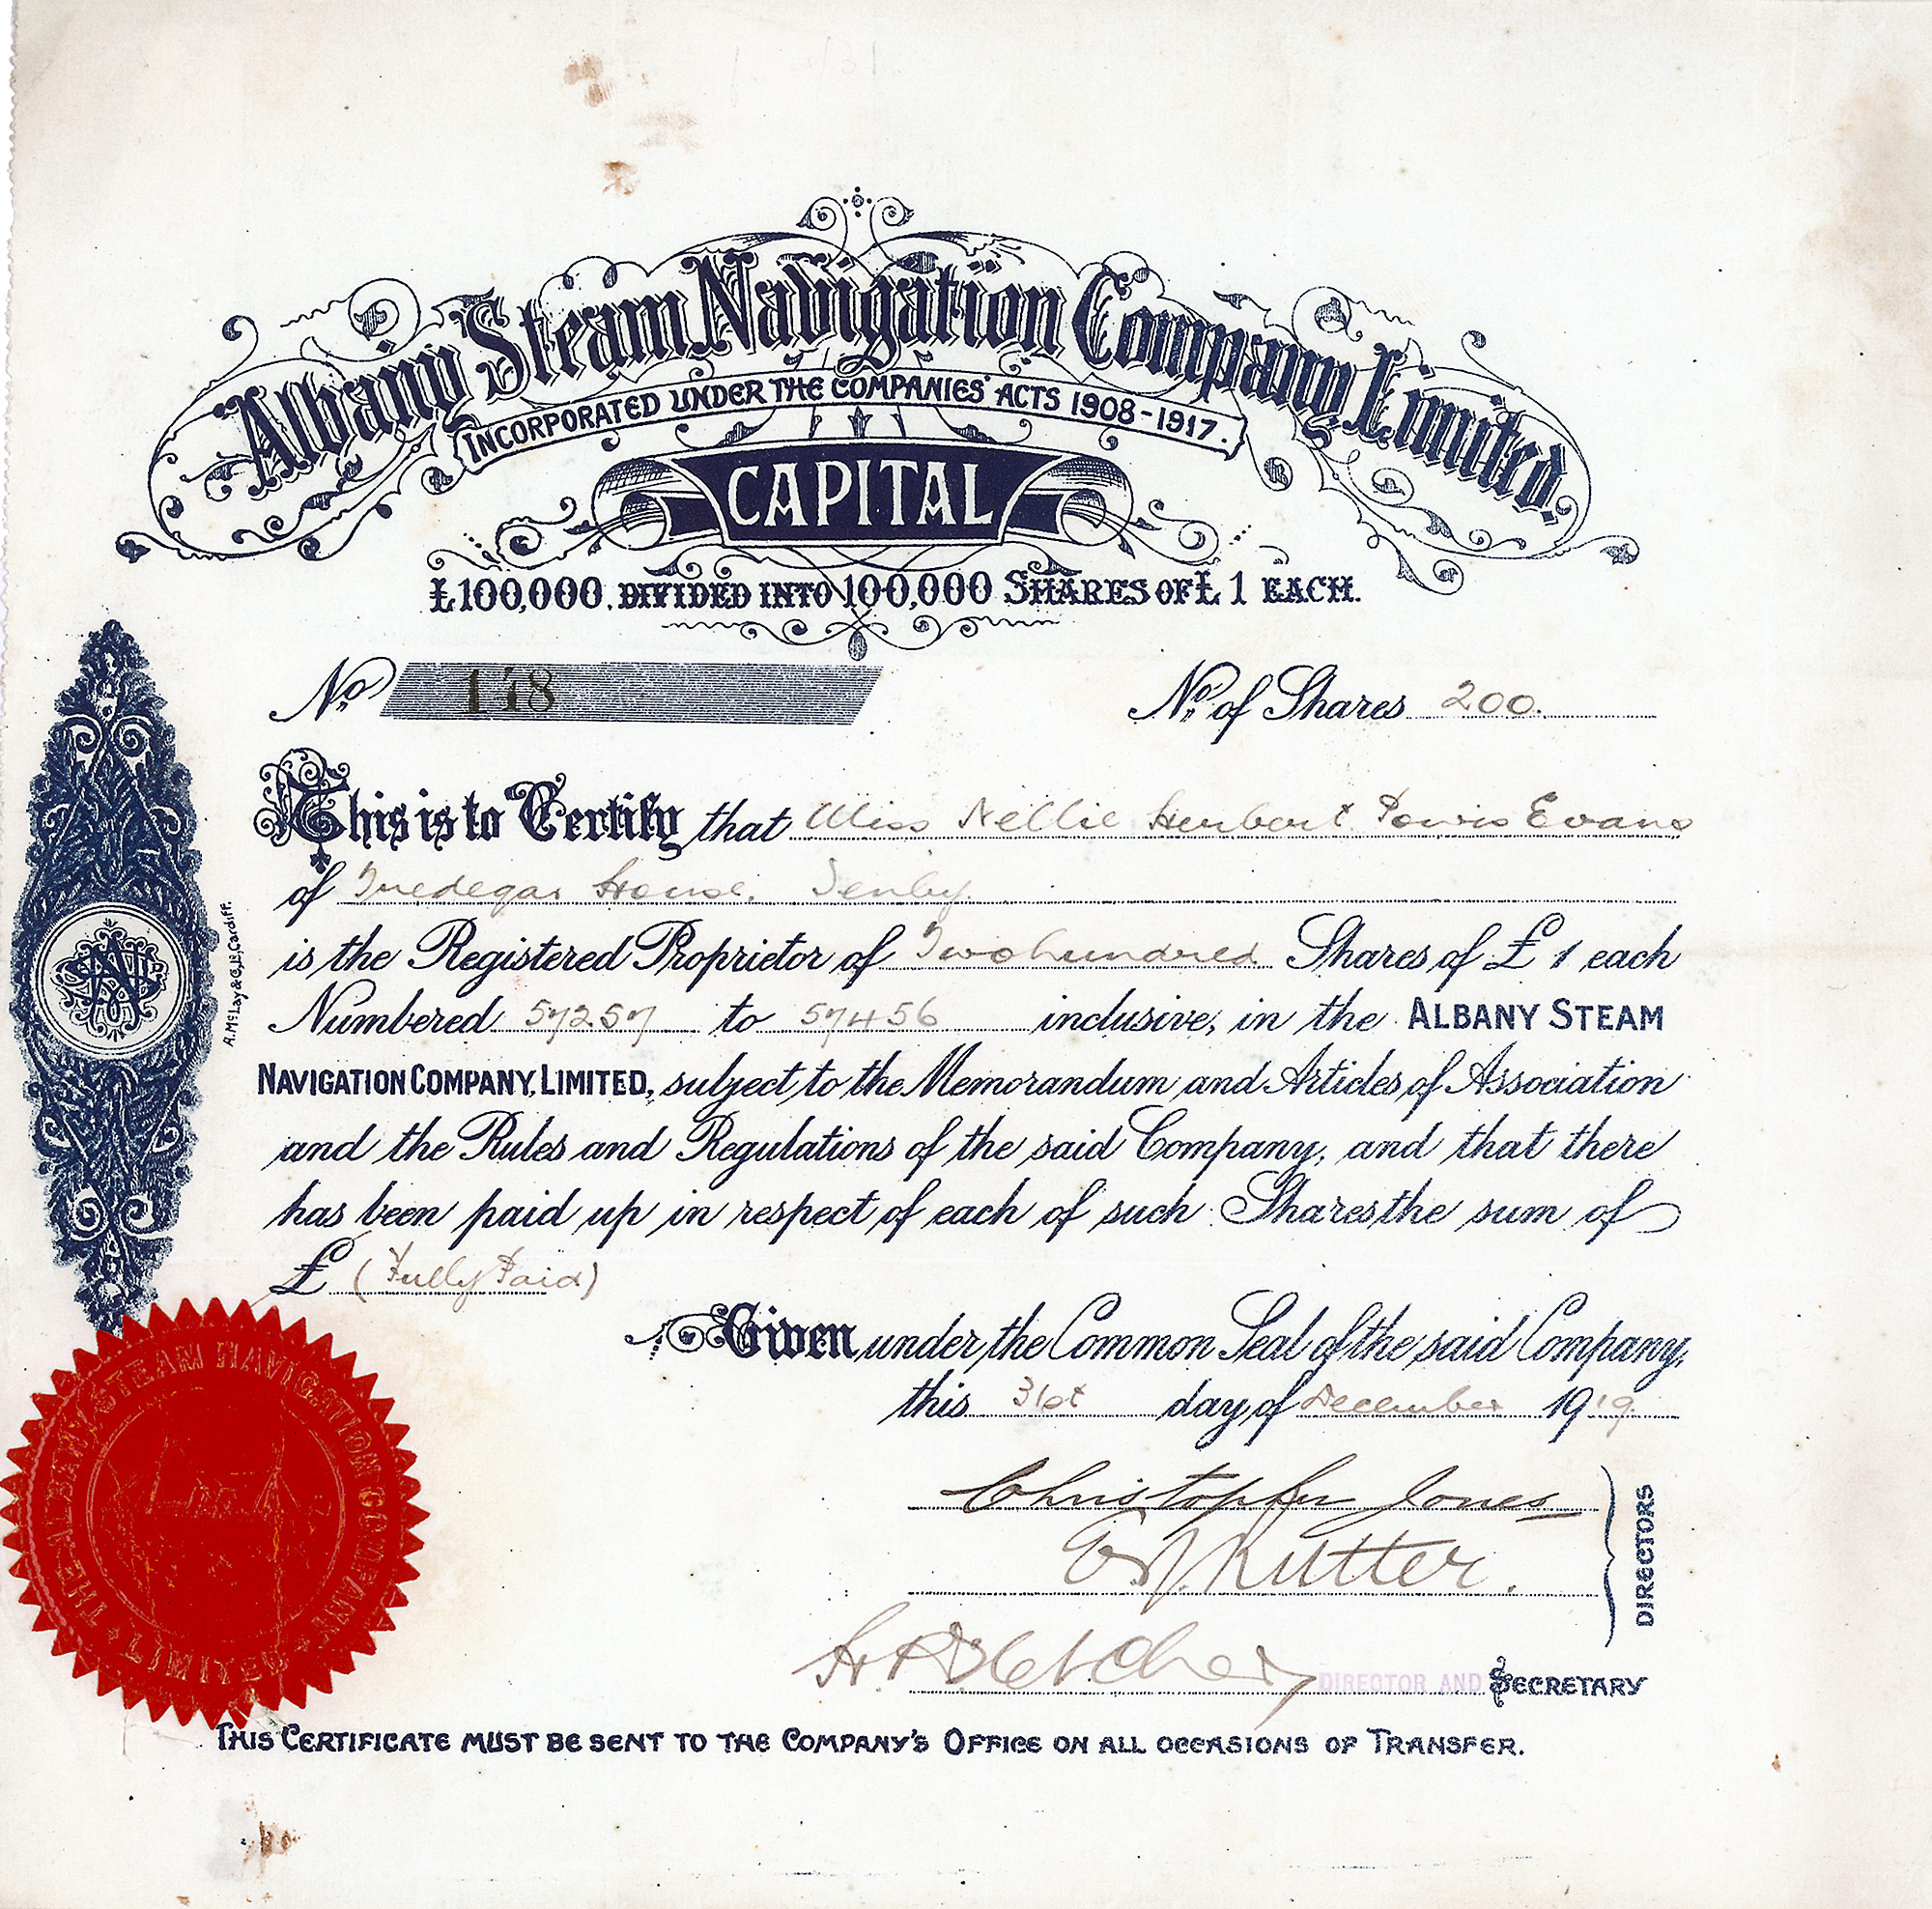 Albany Steam Navigation Company, Limited.
INCORPORATED UNDER THE COMPANIES' ACTS 1908-1917.
CAPITAL
£100,000. DIVIDED INTO 100,000 SHARES OF £1 EACH.
No. 148 No. of Shares 200.
This is to Certify that Miss Nellie Herbert Powis Evans
of Tredegar House, Tenby.
is the Registered Proprietor of Two hundred Shares of £1 each
Numbered 57257 to 57456 inclusive, in the ALBANY STEAM
NAVIGATION COMPANY, LIMITED, subject to the Memorandum and Articles of Association
and the Rules and Regulations of the said Company, and that there
has been paid up in respect of each of such Shares the sum of
£ (Fully Paid)
Given under the Common Seal of the said Company,
this 31st day of December 1919.
Christopher Jones
Rutter.
DIRECTORS
DIRECTOR AND SECRETARY
THIS CERTIFICATE MUST BE SENT TO THE COMPANY'S OFFICE ON ALL OCCASIONS OF TRANSFER.
A. McLay & Co. Ld. Cardiff.
THE ALBANY STEAM NAVIGATION COMPANY LIMITED